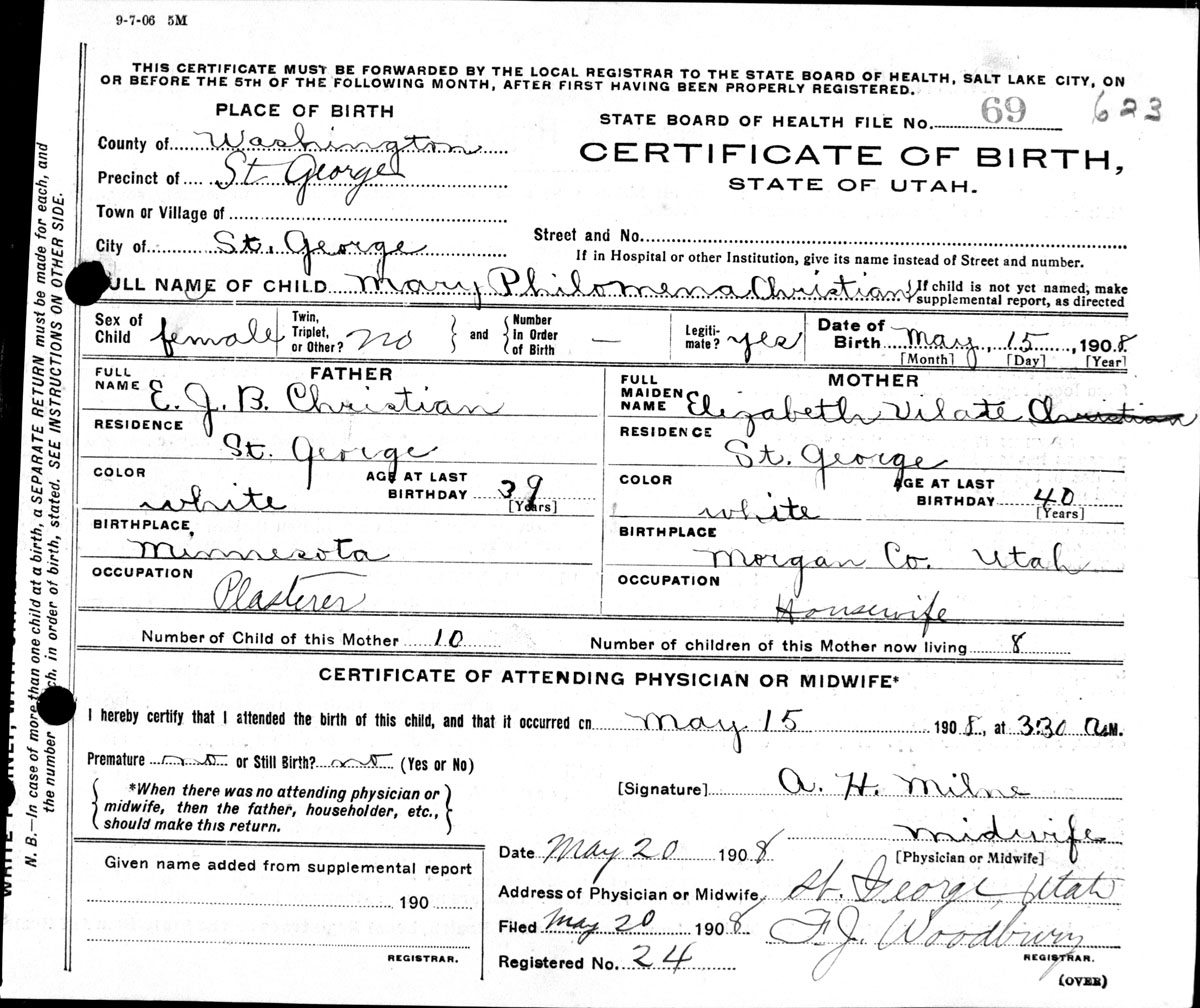 9-7-06 5M
THIS CERTIFICATE MUST BE FORWARDED BY THE LOCAL REGISTRAR TO THE STATE BOARD OF HEALTH, SALT LAKE CITY, ON
OR BEFORE THE 5TH OF THE FOLLOWING MONTH, AFTER FIRST HAVING BEEN PROPERLY REGISTERED.
PLACE OF BIRTH
STATE BOARD OF HEALTH FILE No. 69 623
County of Washington
CERTIFICATE OF BIRTH,
STATE OF UTAH.
Precinct of St. George
Town or Village of
City of St. George
Street and No.
If in Hospital or other Institution, give its name instead of Street and number.
FULL NAME OF CHILD Mary Philomena Christian {If child is not yet named, make
supplemental report, as directed
Sex of Child female Twin, Triplet, or Other? no and Number In Order of Birth — Legitimate? yes Date of Birth May, 15, 1908
[Month] [Day] [Year]
FATHER
FULL NAME E. J. B. Christian
RESIDENCE
St. George
COLOR white AGE AT LAST BIRTHDAY 39
[Years]
BIRTHPLACE
Minnesota
OCCUPATION
Plasterer
MOTHER
FULL MAIDEN NAME Elizabeth Vilate Christian
RESIDENCE
St. George
COLOR white AGE AT LAST BIRTHDAY 40
[Years]
BIRTHPLACE
Morgan Co. Utah
OCCUPATION
Housewife
Number of Child of this Mother 10 Number of children of this Mother now living 8
CERTIFICATE OF ATTENDING PHYSICIAN OR MIDWIFE*
I hereby certify that I attended the birth of this child, and that it occurred on May 15 1908, at 3:30 a.M.
Premature no or Still Birth? no (Yes or No)
*When there was no attending physician or
midwife, then the father, householder, etc.,
should make this return.
[Signature] A. H. Milne
midwife
[Physician or Midwife]
Given name added from supplemental report
190
REGISTRAR.
Date May 20 1908
Address of Physician or Midwife, St. George, Utah
Filed May 20 1908 F. J. Woodbury
REGISTRAR.
Registered No. 24
(OVER)
N. B.—In case of more than one child at a birth, a SEPARATE RETURN must be made for each, and
the number of each, in order of birth, stated. SEE INSTRUCTIONS ON OTHER SIDE.